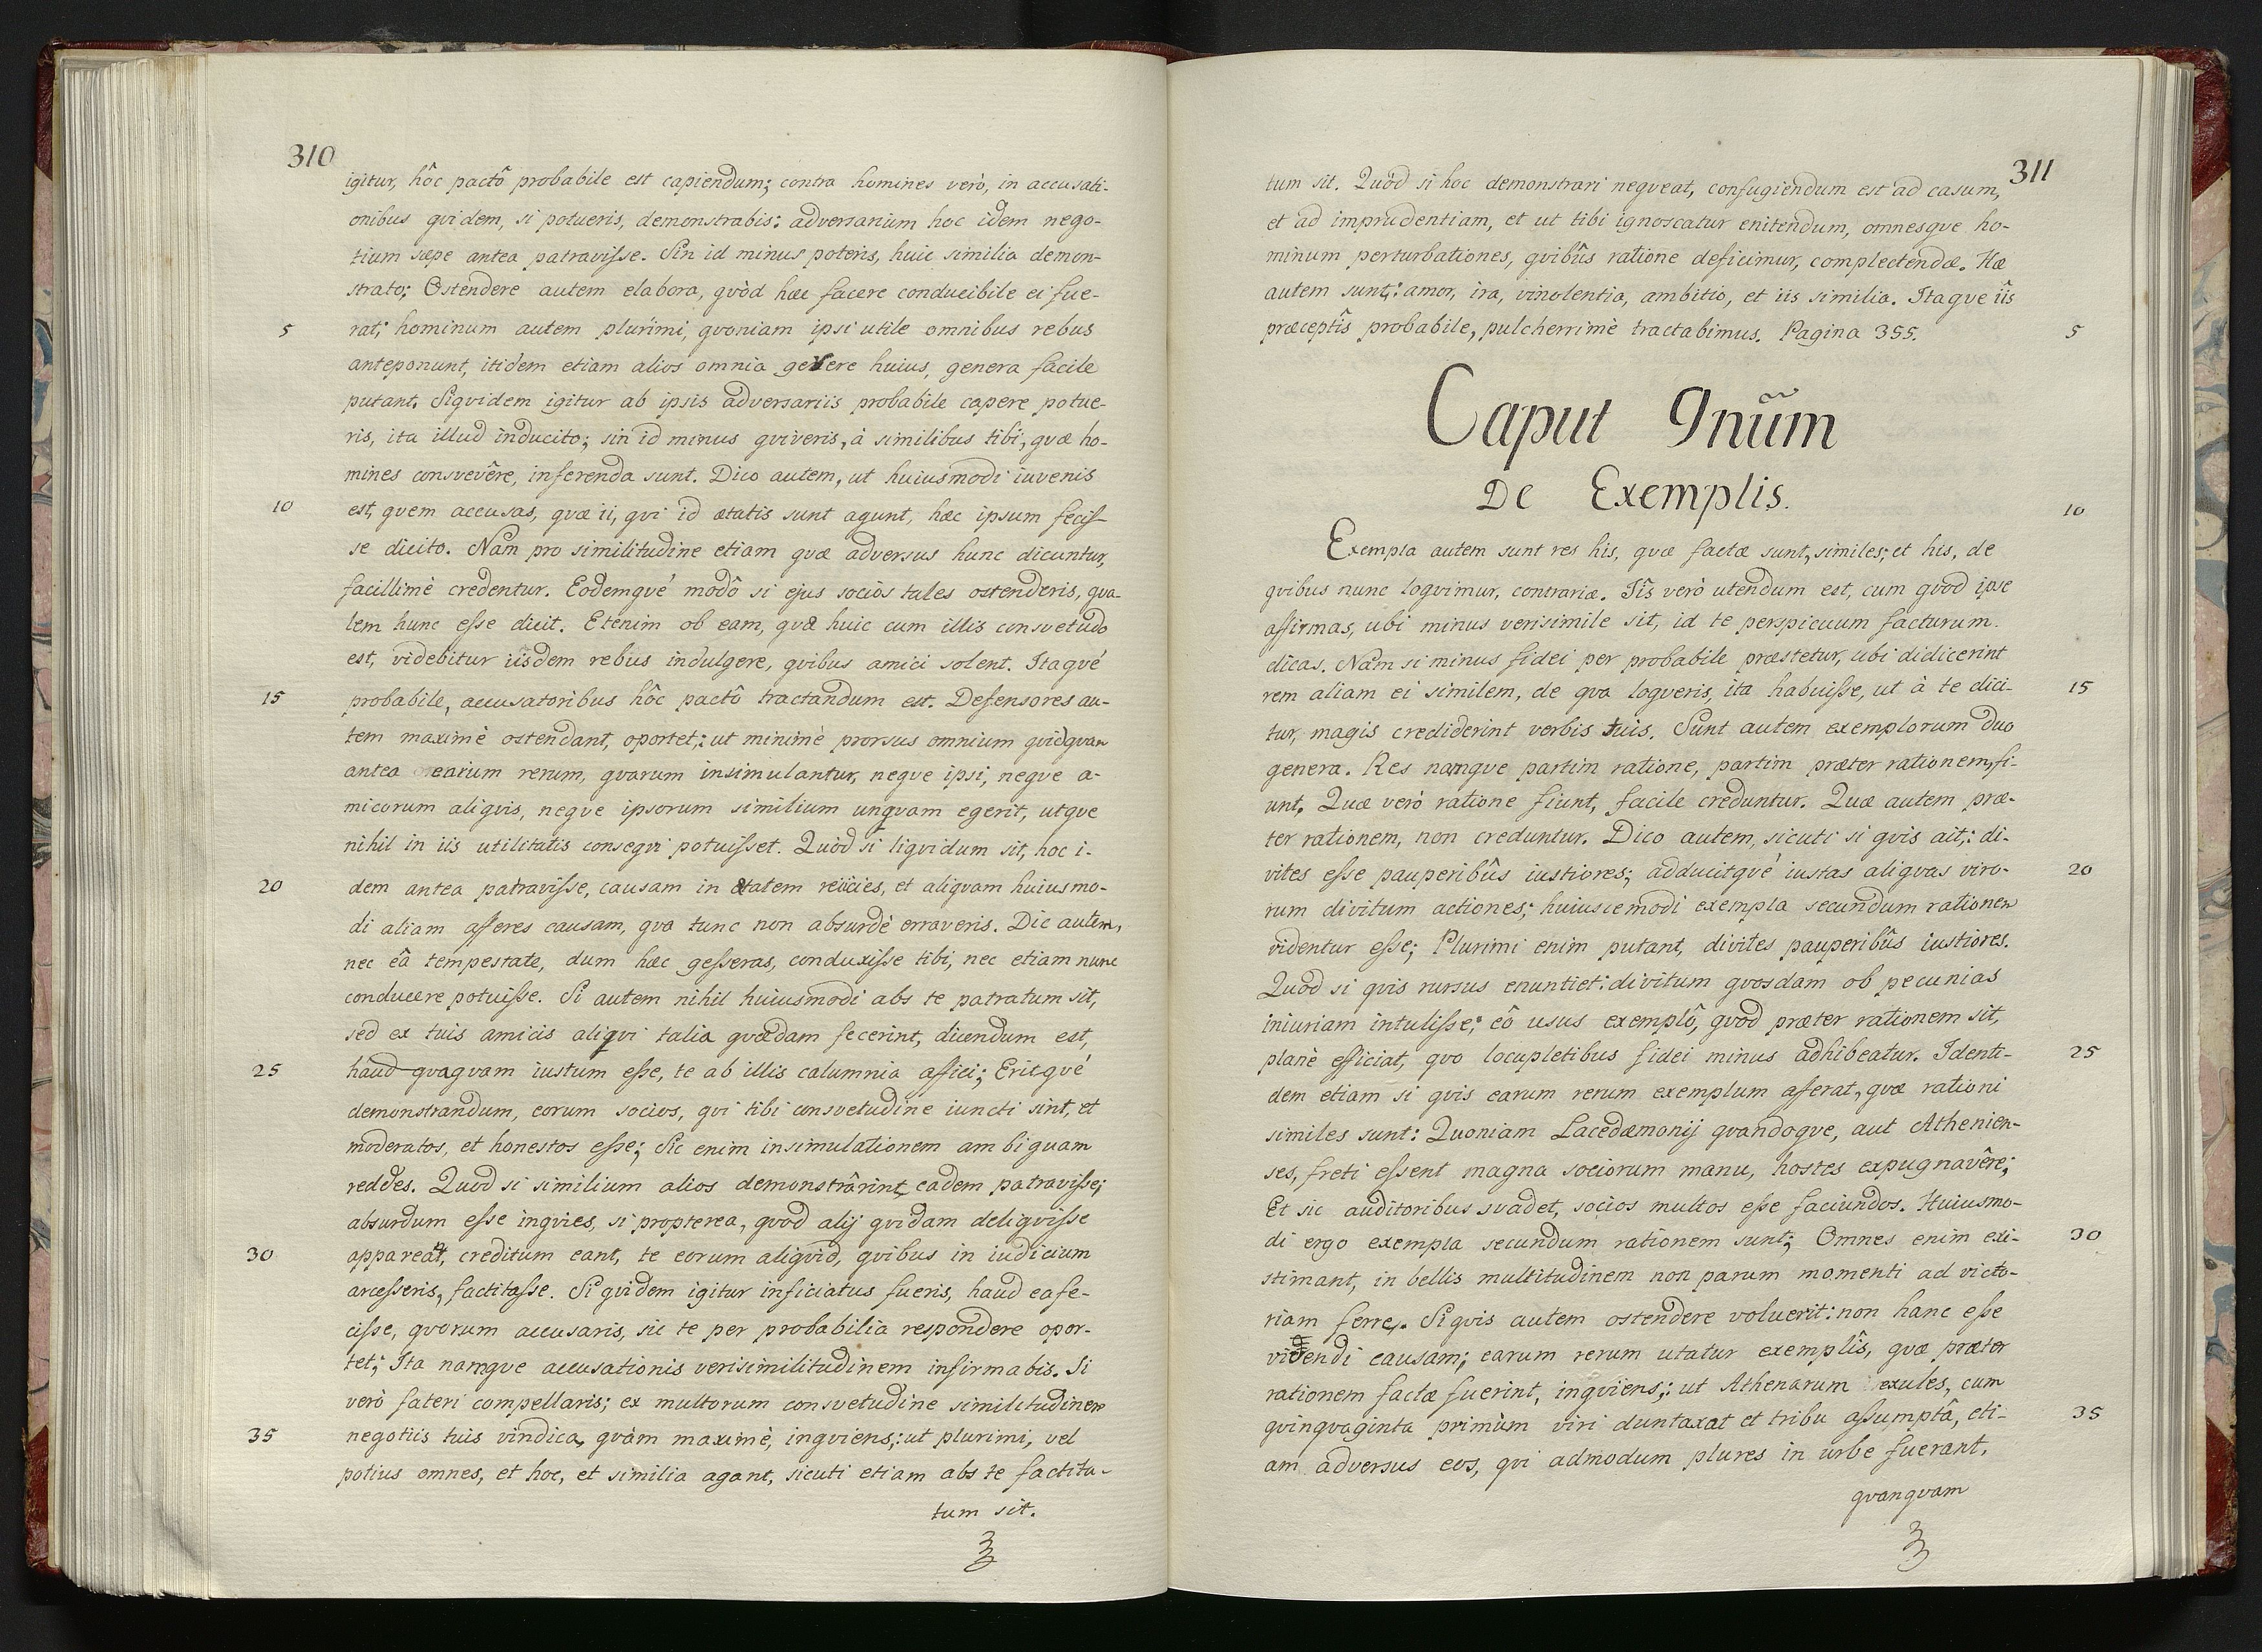 310
igitur, hôc pactô probabile est capiendum; contra homines verò, in accusati-
onibus qvidem, si potueris, demonstrabis: adversarium hoc idem nego-
tium sæpe antea patravisse. Sin id minus poteris, huic similia demon-
strato; Ostendere autem elabora, qvòd hæc facere conducibile ei fue-
5 rat; hominum autem plurimi, qvoniam ipsi utile omnibus rebus
anteponunt, itidem etiam alios omnia gerere huius, genera facile
putant. Siqvidem igitur ab ipsis adversariis probabile capere potue-
ris, ita illud inducito; sin id minus qviveris, à similibus tibi, qvæ ho-
mines consvevêre, inferenda sunt. Dico autem, ut huiusmodi iuvenis
10 est, qvem accusas, qvæ ii, qvi id ætatis sunt agunt, hæc ipsum fecis-
se dicito. Nam pro similitudine etiam qvæ adversus hunc dicuntur,
facillimè credentur. Eodemqvé modô si ejus sociòs tales ostenderis, qva-
lem hunc esse dicit. Etenim ob eam, qvæ huic cum illis consvetudo
est, videbitur iisdem rebus indulgere, qvibus amici solent. Itaqvé
15 probabile, accusatoribus hôc pactô tractandum est. Defensores au-
tem maximè ostendant, oportet,: ut minimè prorsus omnium qvidqvam
antea earum rerum, qvarum insimulantur, neqve ipsi, neqve a-
micorum aliqvis, neqve ipsorum similium unqvam egerit, utqve
nihil in iis utilitatis conseqvi potuisset. Quòd si liqvidum sit, hoc i-
20 dem antea patravisse, causam in ætatem reiicies, et aliqvam huiusmo-
di aliam afferes causam, qva tunc non absurdè erraveris. Dic autem,
nec êâ tempestate, dum hæc gesseras, conduxisse tibi, nec etiam nunc
conducere potuisse. Si autem nihil huiusmodi abs te patratum sit,
sed ex tuis amicis aliqvi talia qvædam fecerint, dicendum est,
25 haud qvaqvam iustum esse, te ab illis calumnia affici; Eritqvé
demonstrandum, eorum socios, qvi tibi consvetudine iuncti sint, et
moderatos, et honestos esse; Sic enim insimulationem ambiguam
reddes. Quod si similium alios demonstrârint, eadem patravisse;
absurdum esse inqvies, si propterea, qvod alij qvidam deliqvisse
30 appareat, creditum eant, te eorum aliqvid, qvibus in iudicium
arcesseris, factitasse. Siqvidem igitur inficiatus fueris, haud ea fe-
cisse, qvorum accusaris, sic te per probabilia respondere opor-
tet; Ita namqve accusationis verisimilitudinem infirmabis. Si
verò fateri compellaris; ex multorum consvetudine similitudinem
35 negotiis tuis vindica, qvàm maximè, inqviens,: ut plurimi, vel
potius omnes, et hoc, et similia agant, sicuti etiam abs te factita-
tum sit.
311
tum sit. Quòd si hoc demonstrari neqveat, confugiendum est ad casum,
et ad imprudentiam, et ut tibi ignoscatur enitendum, omnesqve ho-
minum perturbationes, qvibûs ratione deficimur, complectendæ. Hæ
autem sunt: amor, ira, vinolentia, ambitio, et iis similia. Itaqve iîs
præceptîs probabile, pulcherrimè tractabimus. Pagina 355. 5
Caput 9nũm
De Exemplis.
10
Exempla autem sunt res his, qvæ factæ sunt, similes; et his, de
qvibus nunc loqvimur, contrariæ. Iîs verò utendum est, cum qvod ipse
affirmas, ubi minus verisimile sit, id te perspicuum facturum.
dicas. Nam si minus fidei per probabile præstetur, ubi didicerint
rem aliam ei similem, de qva loqveris, ita habuisse, ut à te dici- 15
tur, magis crediderint verbis tuis. Sunt autem exemplorum duo
genera. Res namqve partim ratione, partim præter rationem, fi-
unt. Quæ verò ratione fiunt, facile creduntur. Quæ autem præ-
ter rationem, non creduntur. Dico autem, sicuti si qvis ait,: di-
vites esse pauperibûs iustiores; adducitqvé iustas aliqvas viro- 20
rum divitum actiones; huiuscemodi exempla secundum rationem
videntur esse; Plurimi enim putant, divites pauperibûs iustiores.
Quòd si qvis rursus enuntiet: divitum qvosdam ob pecunias
iniuriam intulisse; eô usus exemplô, qvod præter rationem sit,
planè efficiat, qvo locupletibus fidei minus adhibeatur. Identi- 25
dem etiam si qvis earum rerum exemplum afferat, qvæ rationi
similes sunt: Quoniam Lacedæmonij qvandoqve, aut Athenien-
ses, freti essent magna sociorum manu, hostes expugnavêre;
Et sic auditoribus svadet, socios multos esse faciundos. Huiusmo-
di ergo exempla secundum rationem sunt; Omnes enim exi- 30
stimant, in bellis multitudinem non parum momenti ad victo-
riam ferre. Siqvis autem ostendere voluerit: non hanc esse
videndi causam; earum rerum utatur exemplîs, qvæ præter
rationem factæ fuerint, inqviens,: ut Athenarum exules, cum
qvinqvaginta primùm viri duntaxat et tribu assumptâ, eti- 35
am adversus eos, qvi admodum plures in urbe fuerant,
qvanqvam